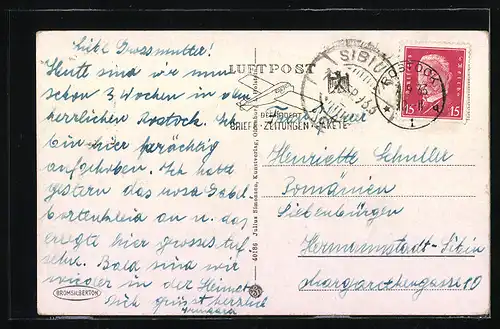 Liebe Grossmutter!
Heute sind wir nun
schon 3 Wochen in dem
herrlichen Rostock. Ich
bin hier prächtig
aufgehoben. Ich hatte
gestern das rosa
an u. das
erregte hier grosses Aufsehen.
Bald sind wir
wieder in der Heimat
Dich grüsst herzlich
Irmgard
BROMSILBERTON
40286 Julius Simonsen, Kunstverlag, Oldenburg
LUFTPOST
BEFÖRDERT
BRIEFE·ZEITUNGEN·PAKETE
SIBIU
ROSTOCK
1
15 15
Henriette Schuller
Rumänien
Siebenbürgen
Hermannstadt-Sibiu
Margarethengasse 10